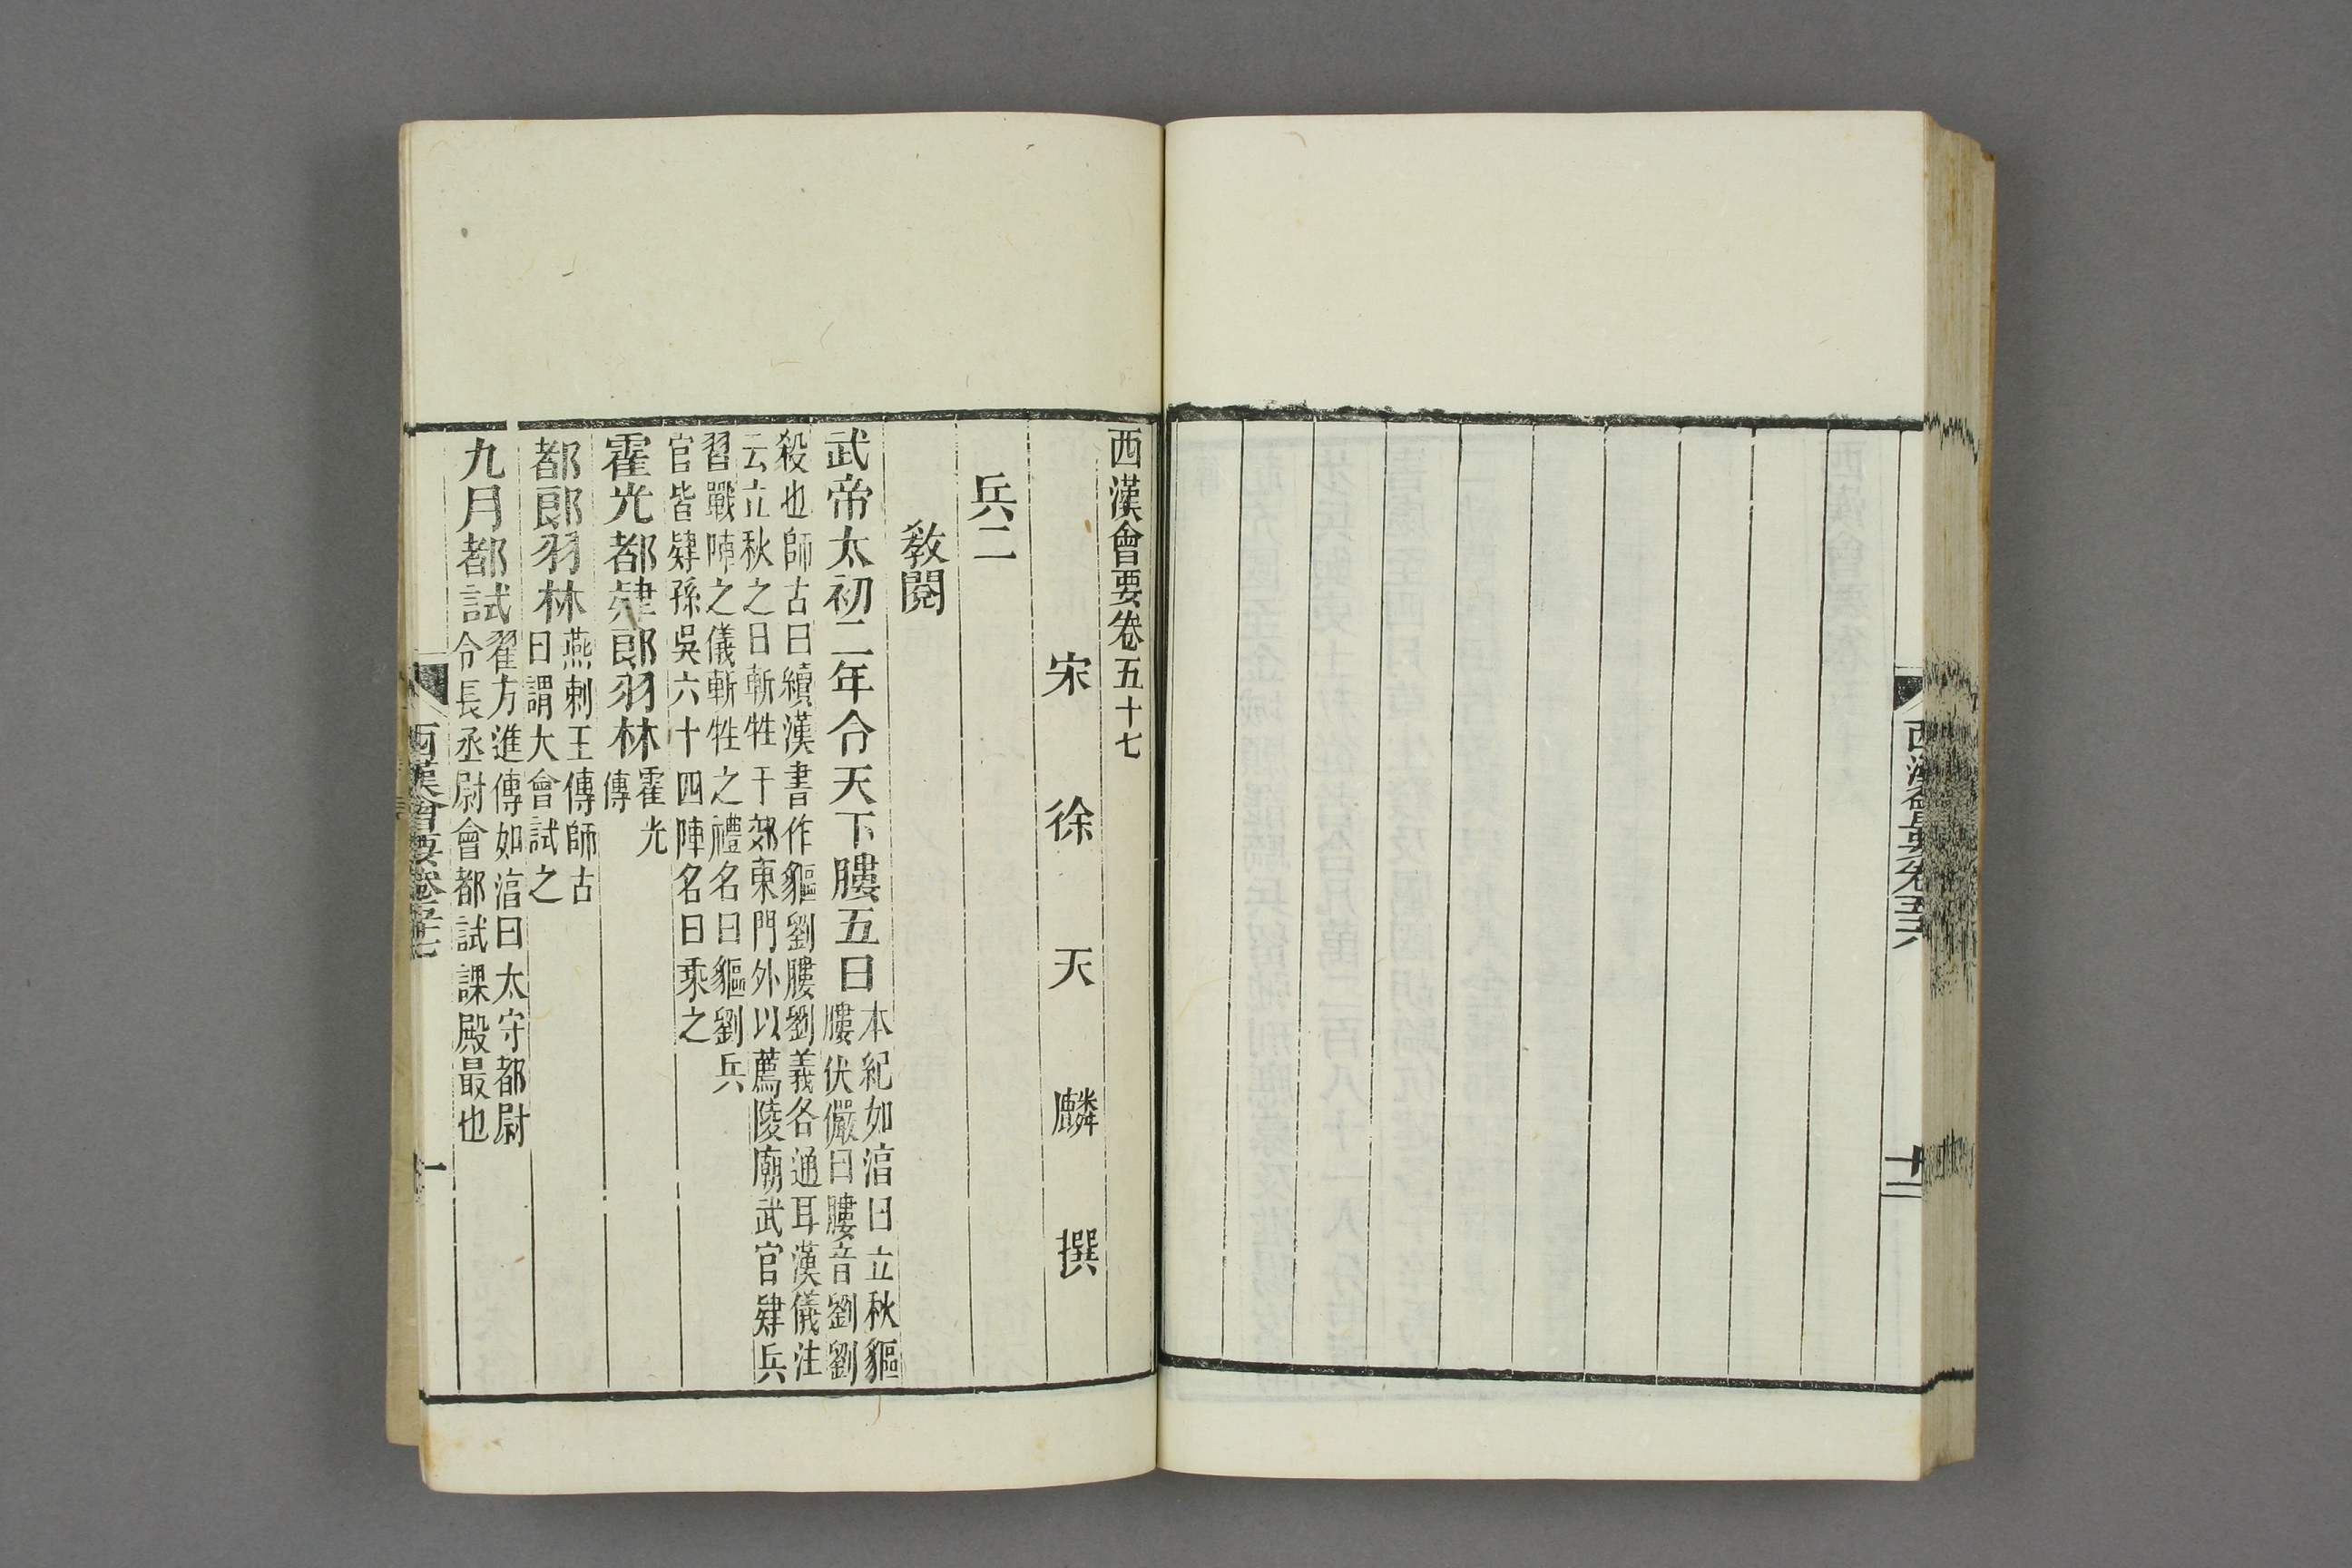 西漢會要卷五十六
十二
西漢會要卷五十七
宋徐天麟撰
兵二
敎閱
武帝太初二年令天下膢五日本紀如湻曰立秋貙
膢伏儼曰膢音劉劉
殺也師古曰續漢書作貙劉膢劉義各通耳漢儀注
云立秋之日斬牲于郊東門外以薦陵廟武官肄兵
習戰陣之儀斬牲之禮名曰貙劉兵
官皆肄孫吳六十四陣名曰乘之
霍光都肄郎羽林霍光
傳
都郎羽林燕剌王傳師古
曰謂大會試之
九月都試翟方進傳如湻曰太守都尉
令長丞尉會都試課殿最也
西漢會要卷五十七
一